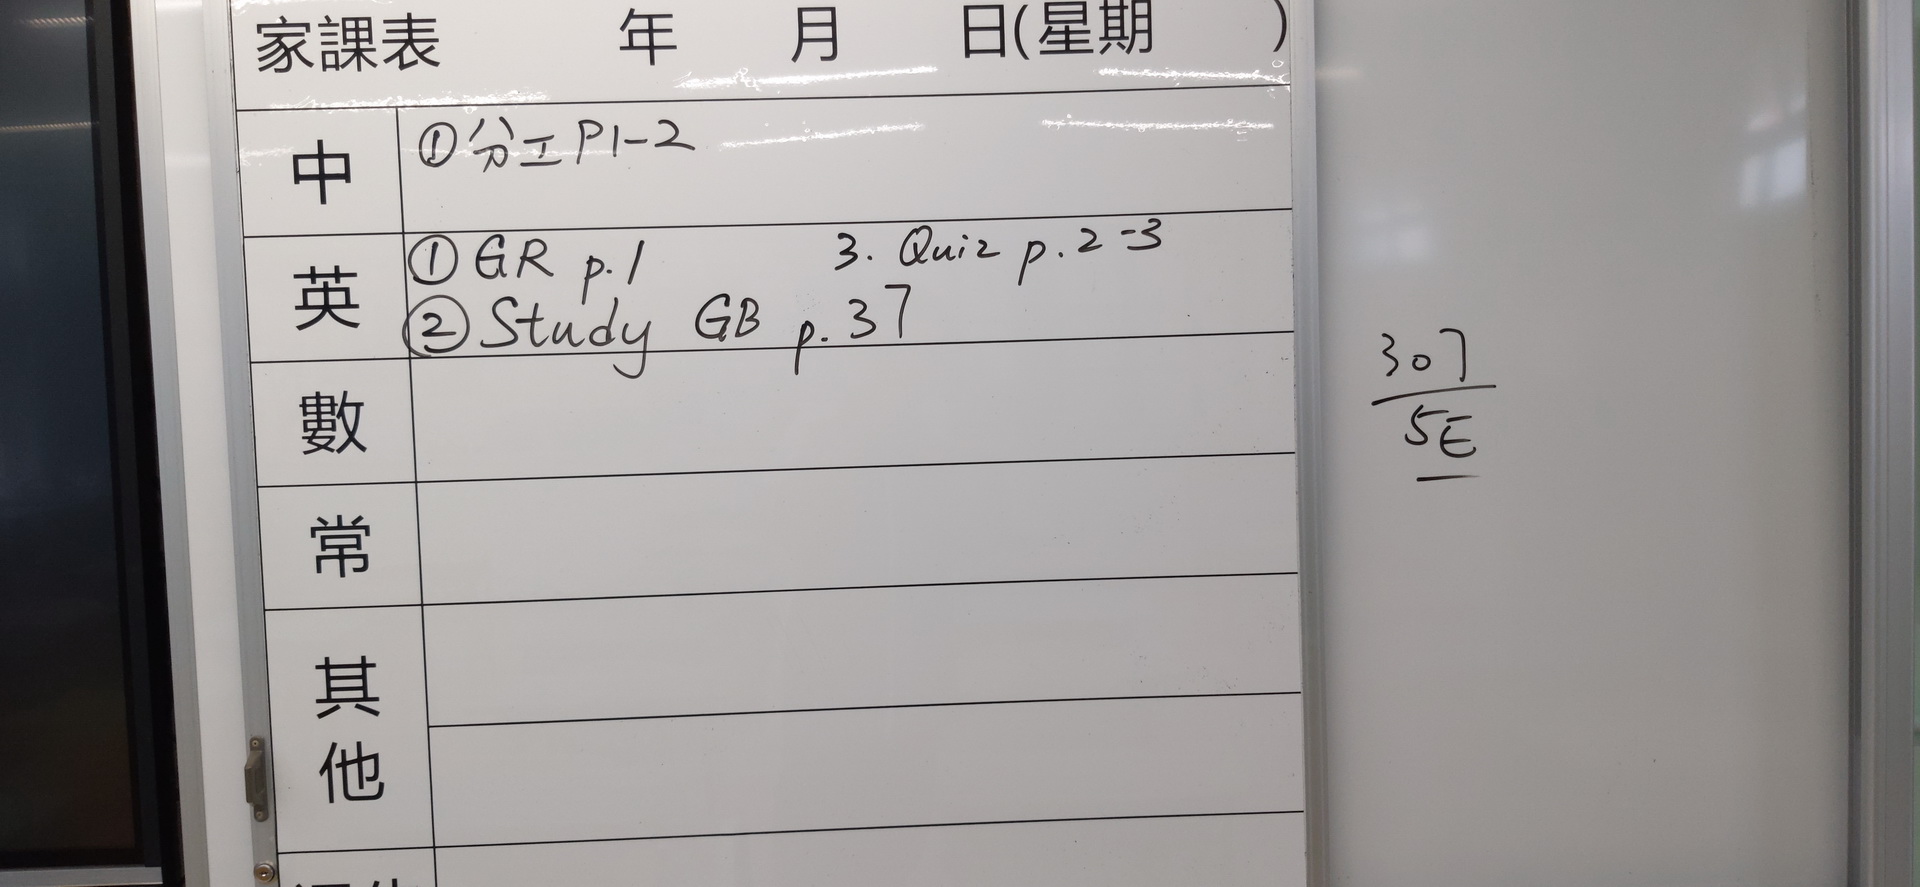 家課表 年 月 日(星期 )
中 ①分工P1-2
英 ①GR p.1 3. Quiz p.2-3
②Study GB p.37
數
常
其他
307
5E